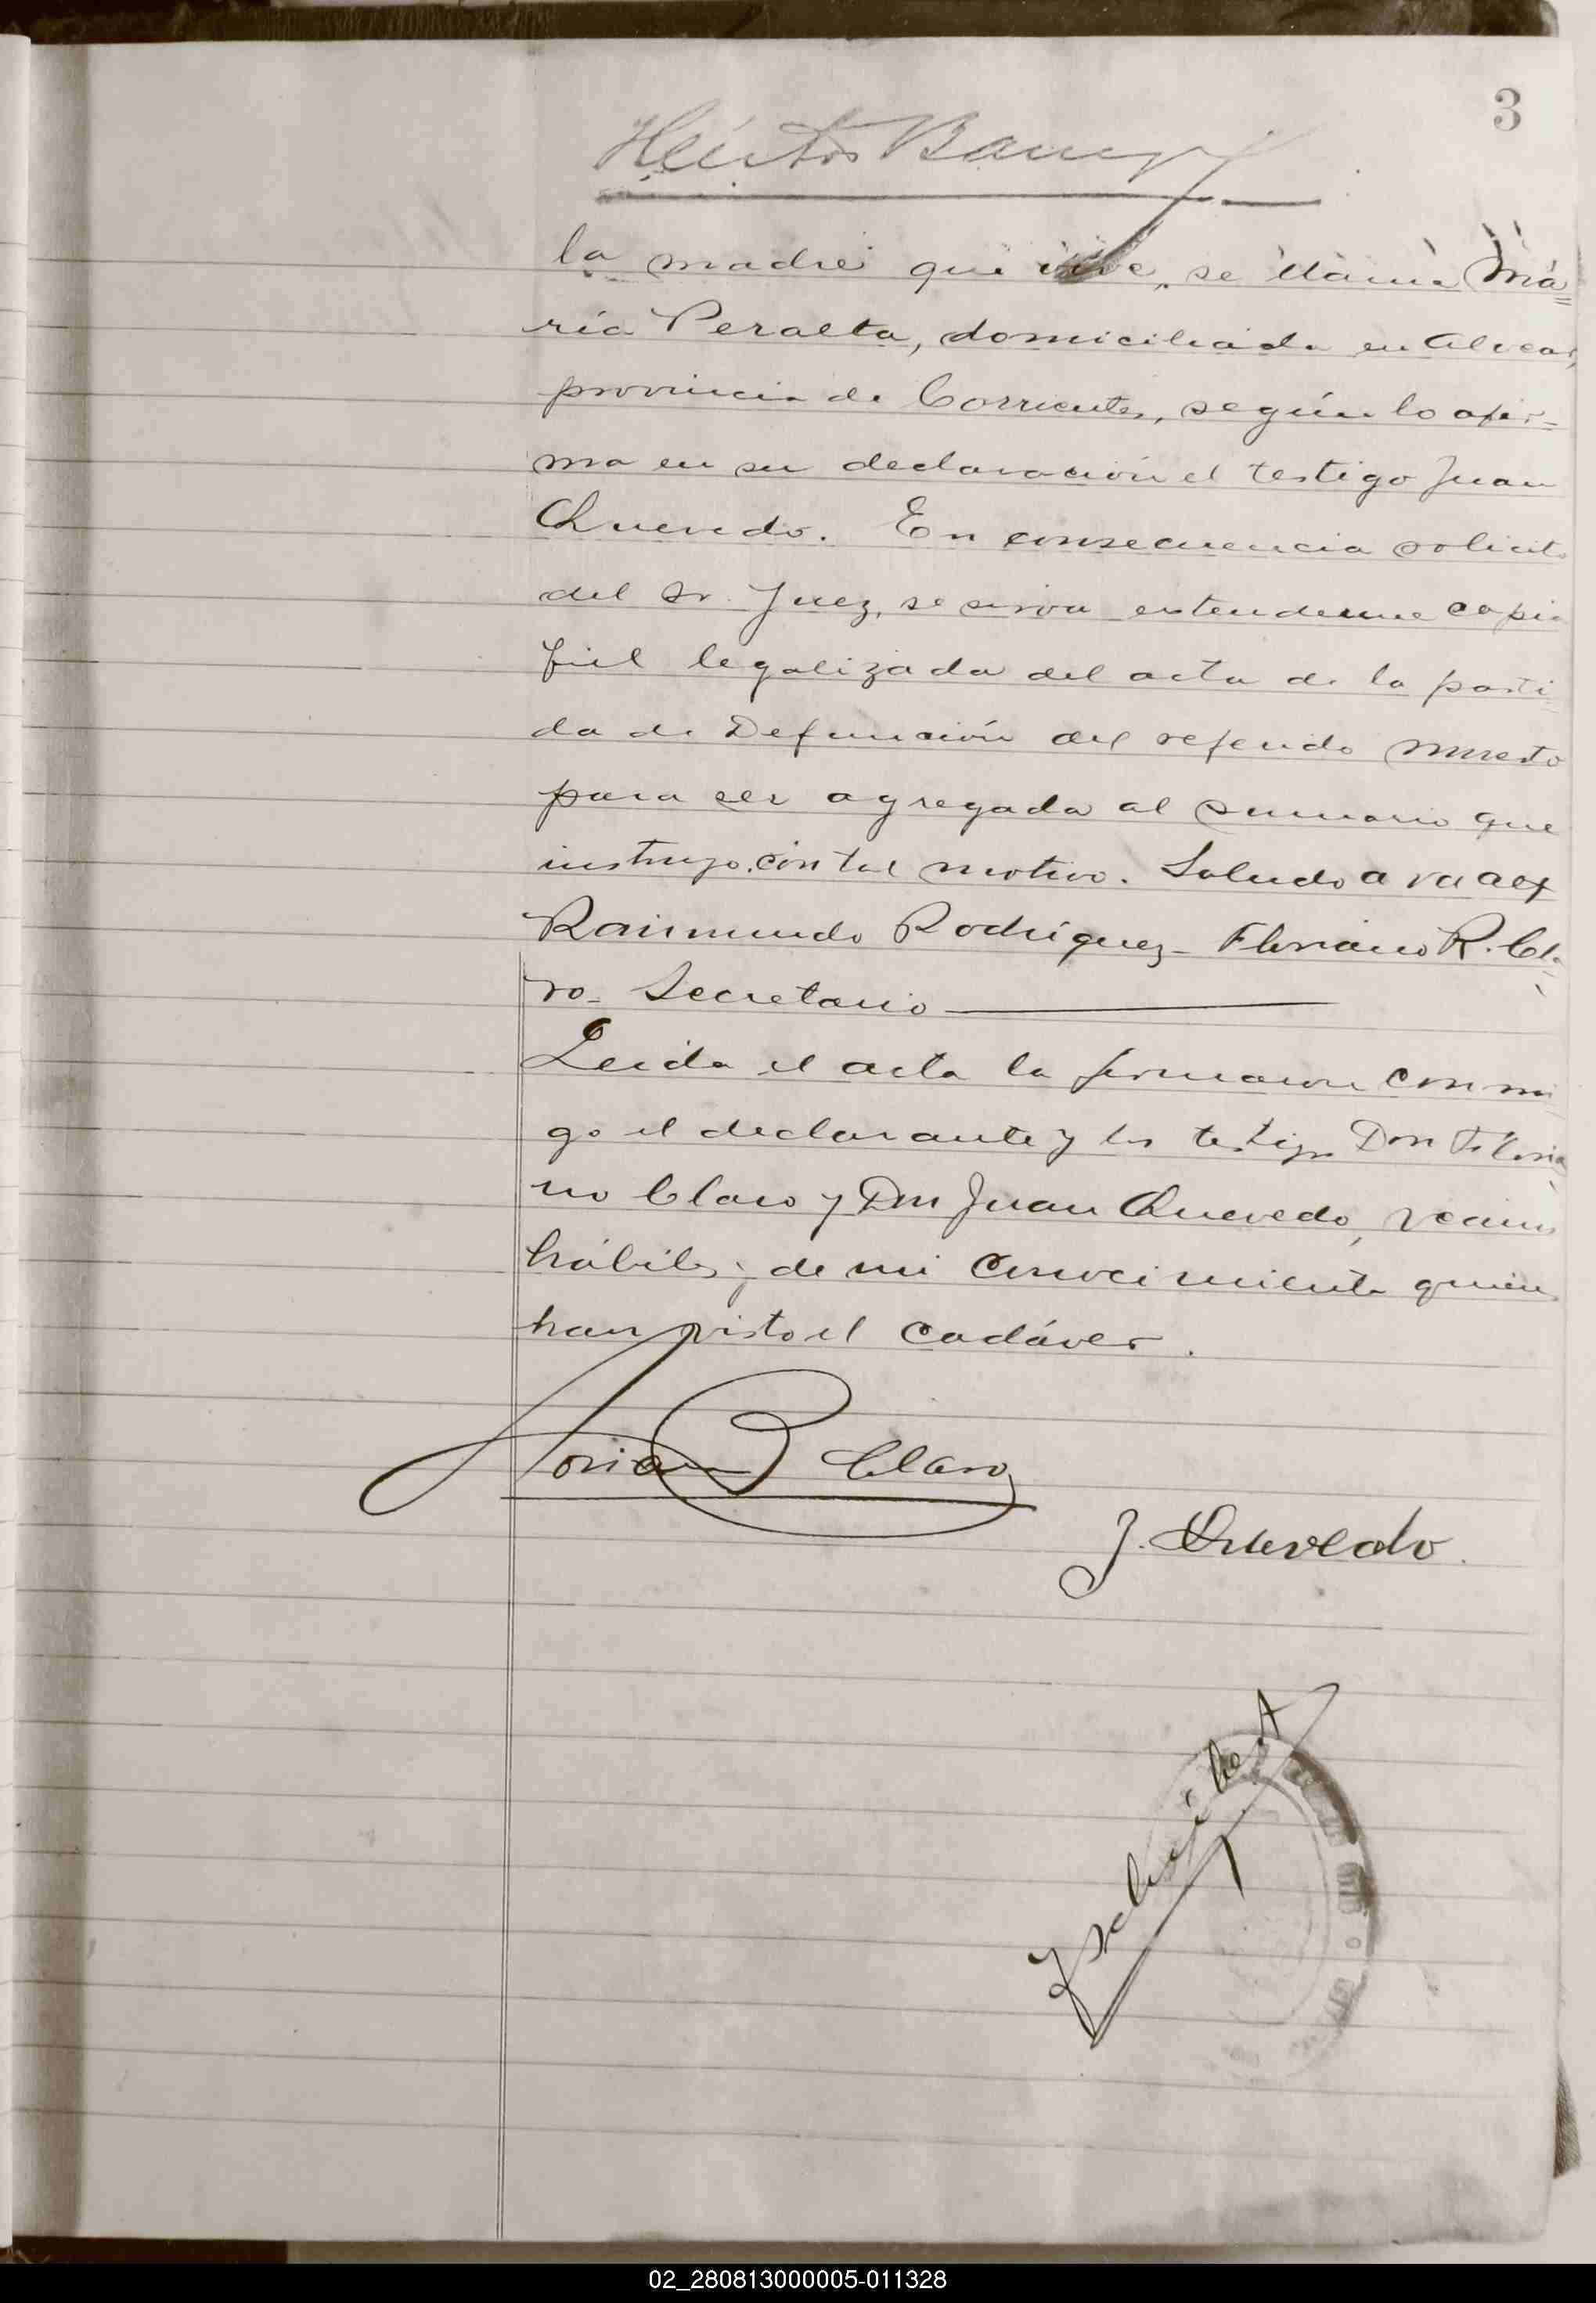 3
la madre que vive, se llama Ma=
ría Peralta, domiciliada en Alvear,
provincia de Corrientes, según lo afir-
ma en su declaración el testigo Juan
Quevedo. En consecuencia solicito
del Sr. Juez, se sirva estenderme copia
fiel legalizada del acta de la parti-
da de Defunción del referido muerto
para ser agregada al sumario que
instruyo con tal motivo. Saludo a
Raimundo Rodríguez - Floriano R. Cla-
ro - Secretario
Leida el acta la firmaron conmi-
go el declarante y los testigos Don Floria-
no Claro y Don Juan Quevedo, vecinos
hábiles y de mi conocimiento quienes
han visto el cadáver.
Floriano R Claro
J. Quevedo.
02_280813000005-011328